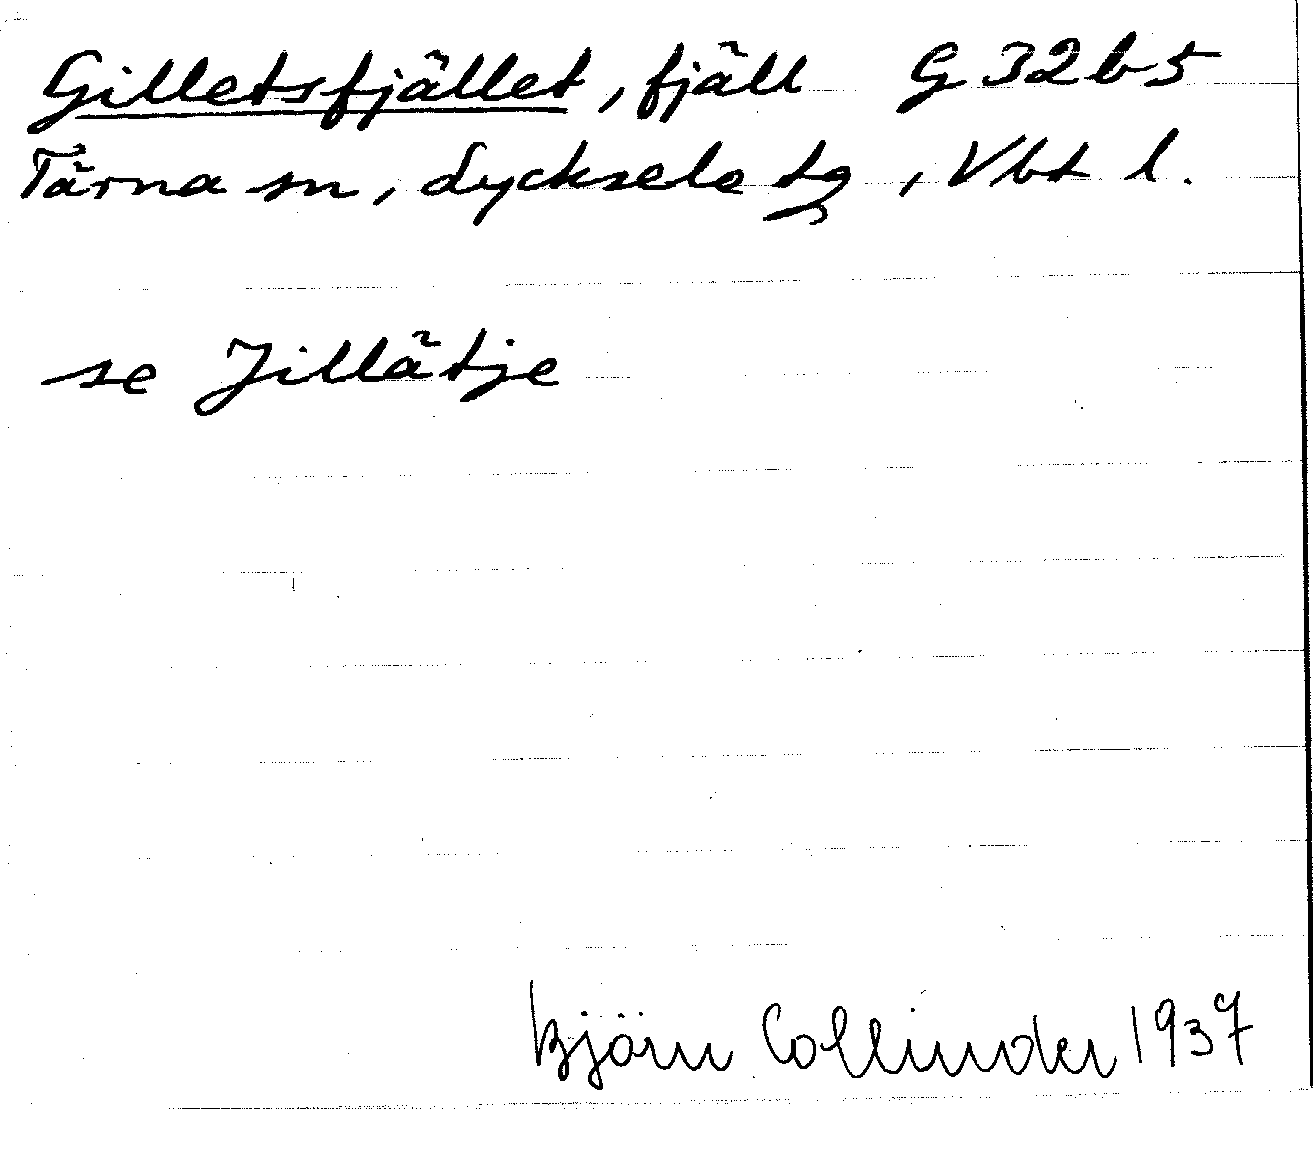 Gilletsfjället, fjäll G 32 b 5
Tärna sn, Lycksele tg, Vbt l.
se Jillätje
Björn Collinder 1937